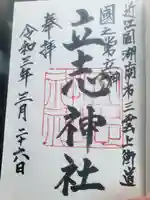 近江国湖南市三雲上御道
國之常立神
立志神社
奉拝
令和三年三月二十六日